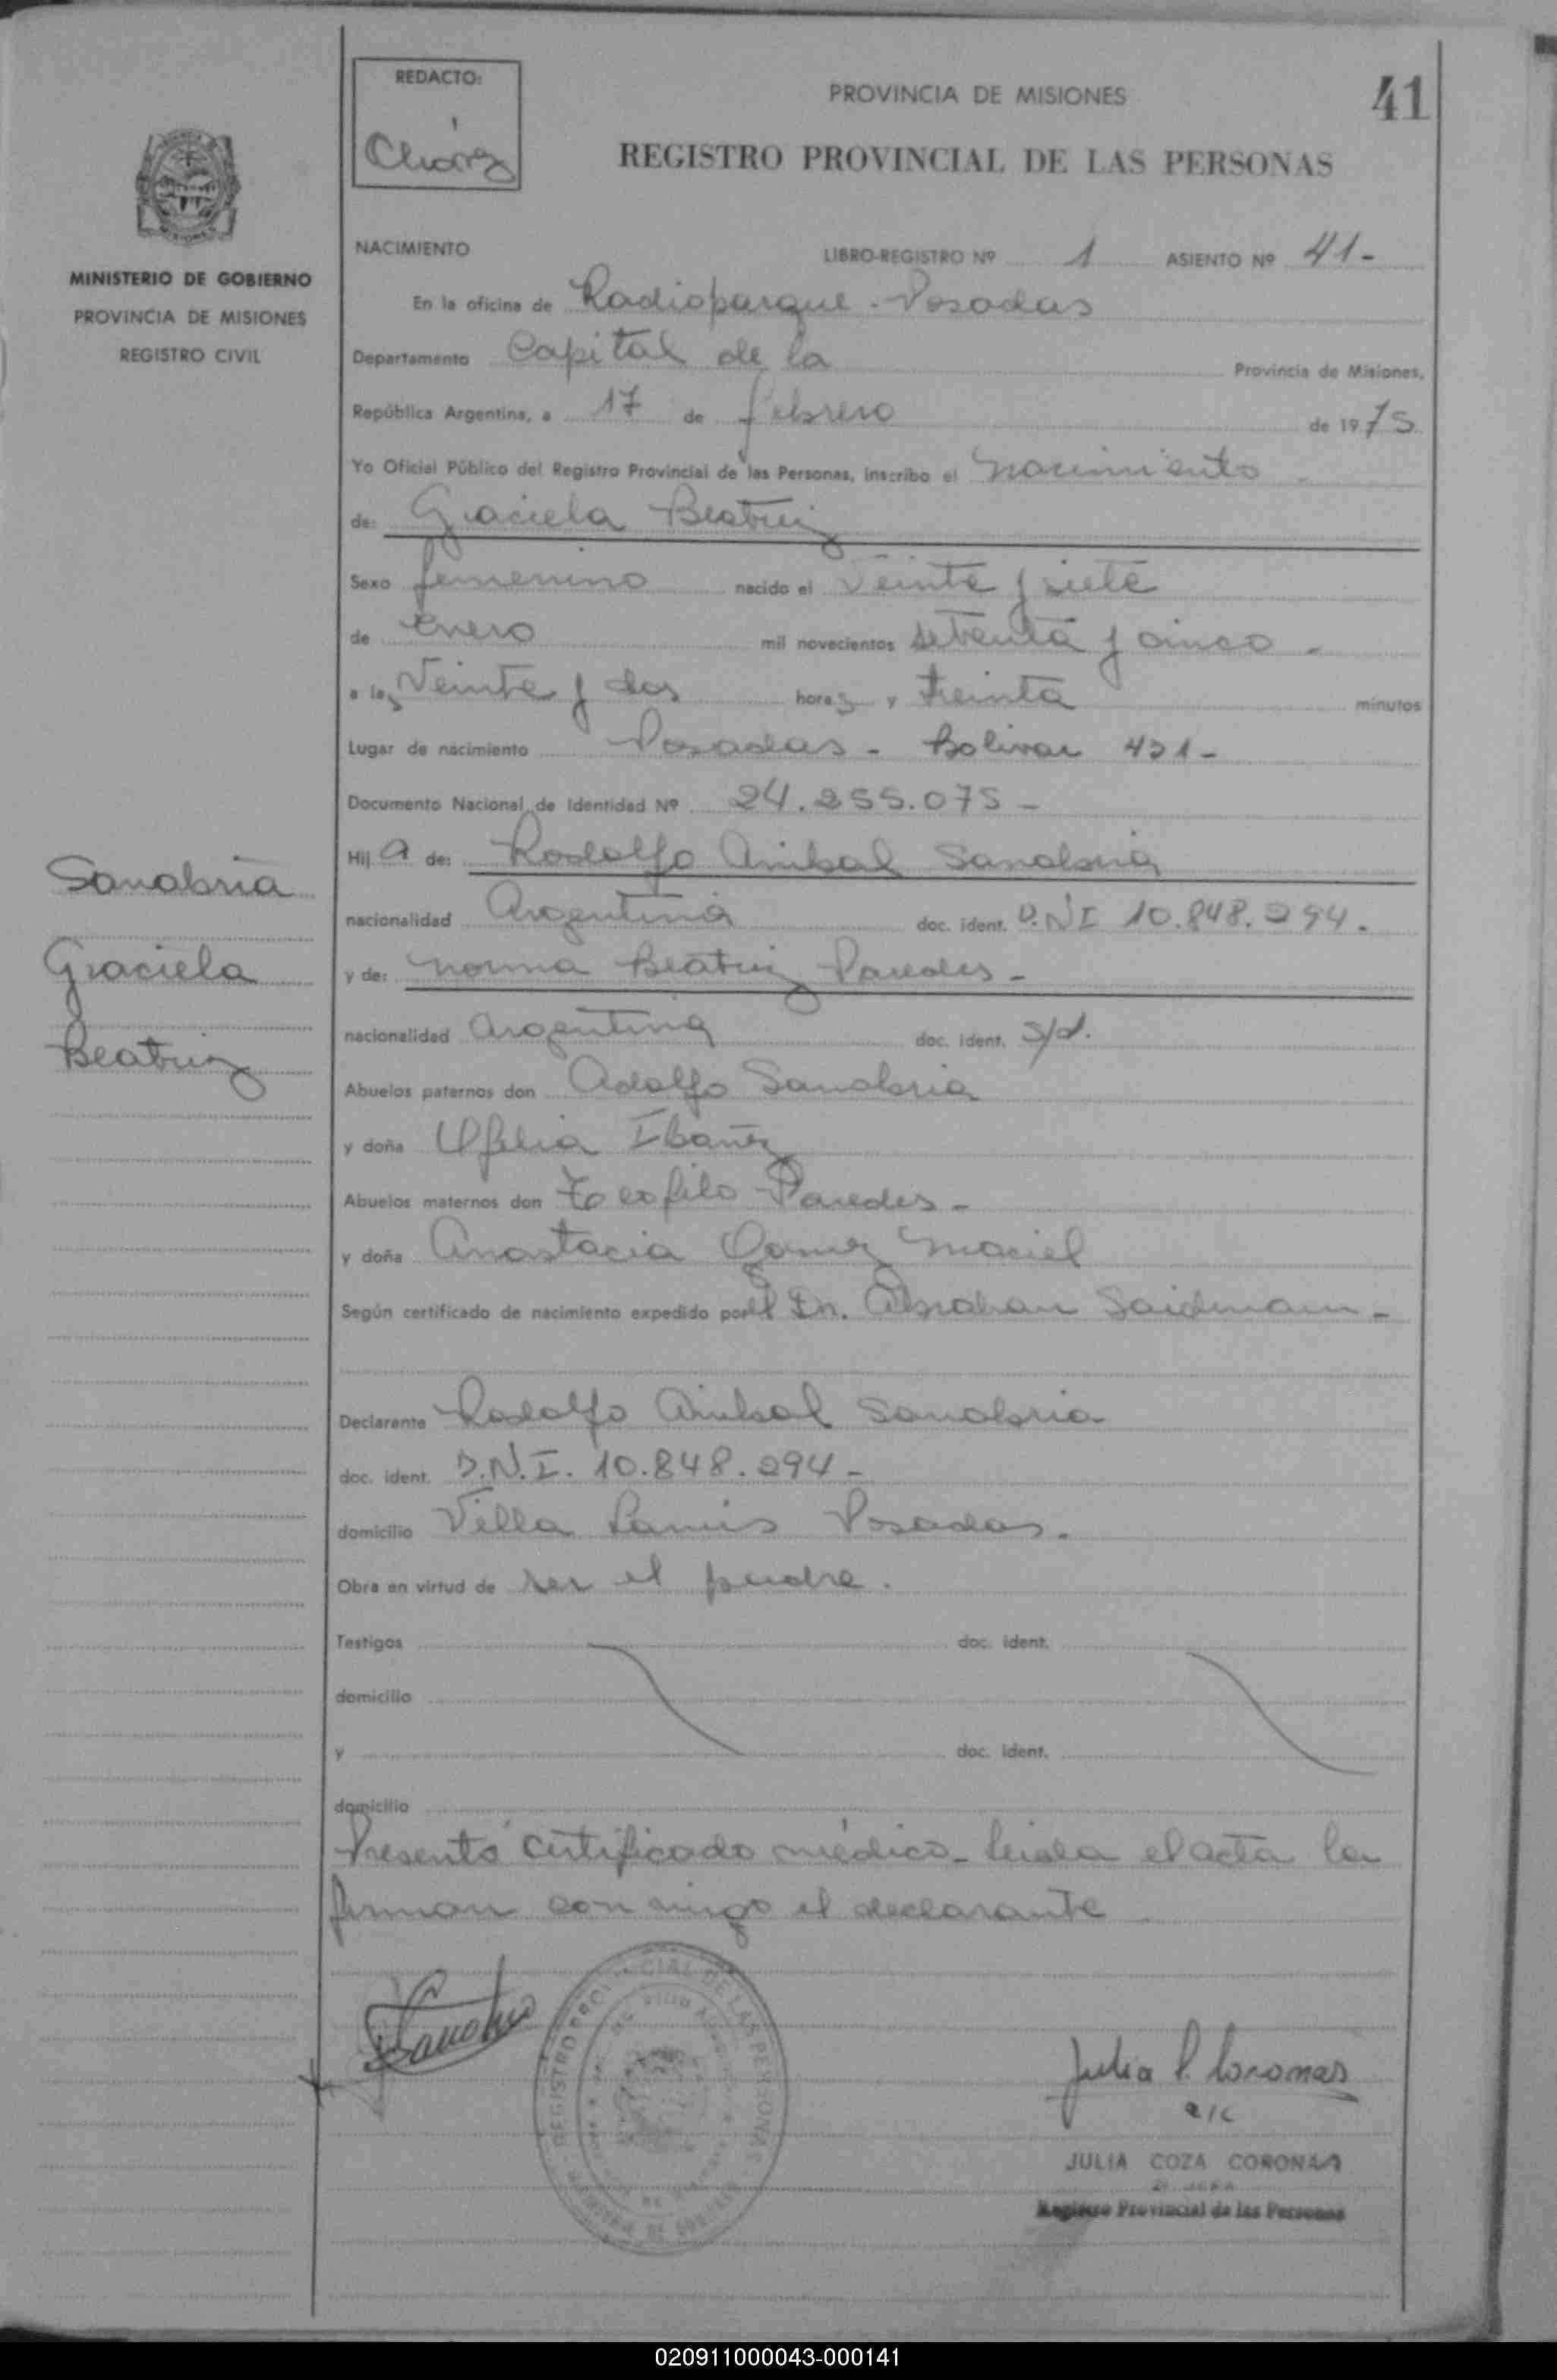 REDACTO:
PROVINCIA DE MISIONES
41
REGISTRO PROVINCIAL DE LAS PERSONAS
MINISTERIO DE GOBIERNO
PROVINCIA DE MISIONES
REGISTRO CIVIL
NACIMIENTO LIBRO-REGISTRO Nº 1 ASIENTO Nº 41-
En la oficina de Radioparque - Posadas
Departamento Capital de la Provincia de Misiones,
República Argentina, a 17 de febrero de 1975
Yo Oficial Público del Registro Provincial de las Personas, inscribo el nacimiento
de: Graciela Beatriz
Sexo femenino nacido el veinte y siete
de Enero mil novecientos setenta y cinco -
a las Veinte y dos horas y treinta minutos
Lugar de nacimiento Posadas - Bolivar 421-
Documento Nacional de Identidad Nº 24.255.075 -
Hija de: Rodolfo Anibal Sanabria
nacionalidad Argentina doc. ident. D.N.I 10.848.294.
y de: Norma Beatriz Paredes -
nacionalidad argentina doc. ident. S/d.
Abuelos paternos don Adolfo Sanabria
y doña Ofelia Ibañez
Abuelos maternos don Teofilo Paredes -
y doña Anastacia Gomez Maciel
Según certificado de nacimiento expedido por el Dr. Abrahan Saidmann -
Declarante Rodolfo Anibal Sanabria
doc. ident. D.N.I. 10.848.294 -
domicilio Villa Lanus Posadas.
Obra en virtud de ser el padre.
Testigos doc. ident.
domicilio
y doc. ident.
domicilio
Presentó certificado médico - leida el acta la
firman conmigo el declarante
Sanabria
Graciela
Beatriz
REGISTRO PROVINCIAL DE LAS PERSONAS
Julia C. Coronas
a/c
JULIA COZA CORONAS
Registro Provincial de las Personas
020911000043-000141